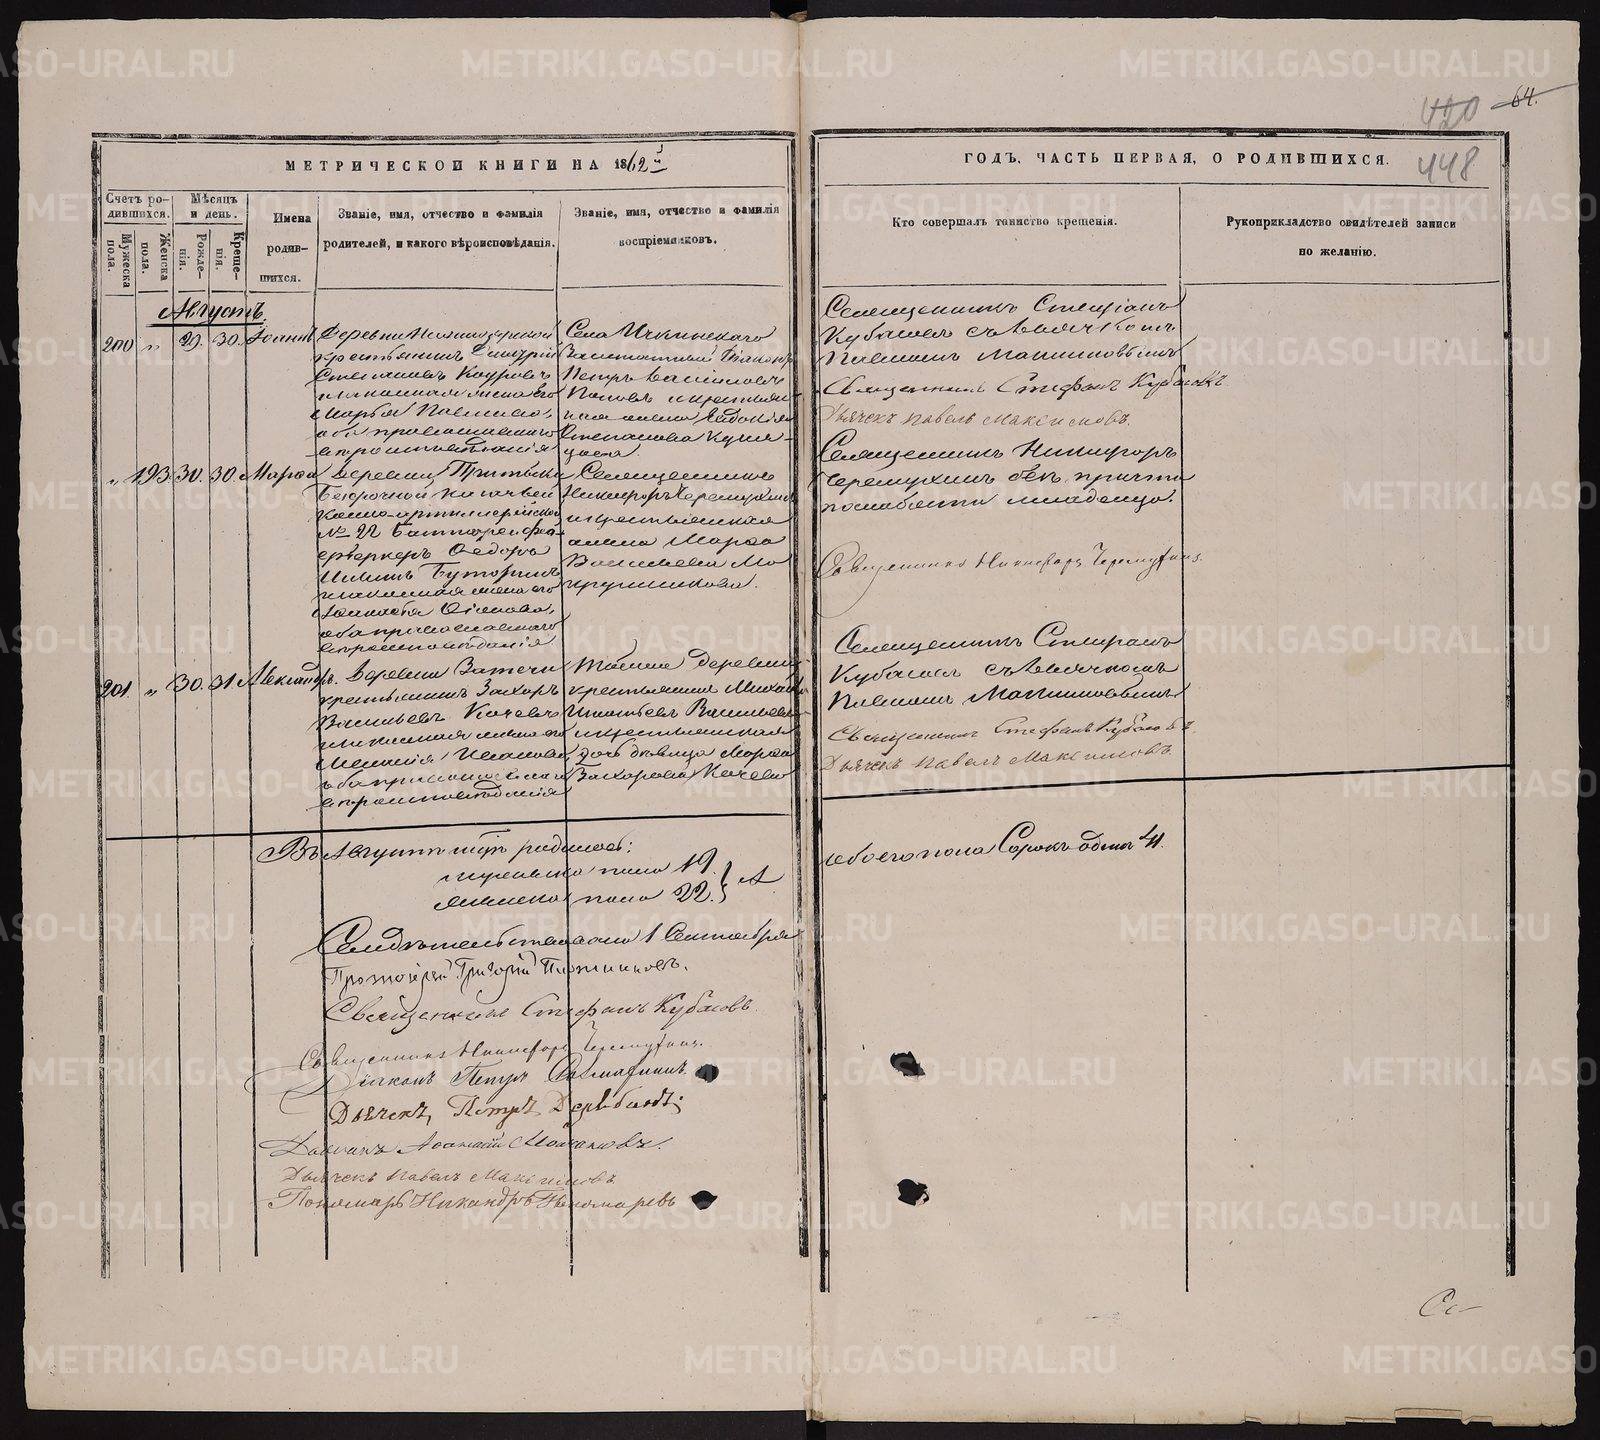 420 64.
МЕТРИЧЕСКОЙ КНИГИ НА 1862й
ГОДЪ, ЧАСТЬ ПЕРВАЯ, О РОДИВШИХСЯ.
448
Счетъ родившихся.
Мужеска пола.
Женска пола.
Мѣсяцъ и день.
Рожденія.
Крещенія.
Имена родившихся.
Званіе, имя, отчество и фамилія
родителей, и какого вѣроисповѣданія.
Званіе, имя, отчество и фамилія
воспріемниковъ.
Кто совершалъ таинство крещенія.
Рукоприкладство свидѣтелей записи
по желанію.
Августъ.
200 " 29. 30. Іоаннъ
Деревни
крестьянинъ Димитрій
Степановъ
законная жена его
Марѳа Павлова,
оба православнаго
вѣроисповѣданія
Села Ичкинскаго
Діаконъ
Петръ Василіевъ
Поповъ и крестьян-
ская жена Евдокія
Степанова
Священникъ Стефанъ
Кубасовъ съ Дьячкомъ
Павломъ Максимовымъ
Священникъ Стефанъ Кубасовъ
Дьячекъ Павелъ Максимовъ.
" 193 30. 30. Марѳа
Деревни
Конно-артиллерійской
№ 22 Баттареи фей-
ерверкеръ Ѳедоръ
Ильинъ Буторинъ
законная жена его
оба православнаго
вѣроисповѣданія
Священникъ
Никифоръ Черемухинъ
и крестьянская
жена Марѳа
Васильева
Священникъ Никифоръ
Черемухинъ безъ причта
по слабости младенца.
Священникъ Никифоръ Черемухинъ.
201. " 30. 31. Александръ.
Деревни Затечи
крестьянинъ Захаръ
Васильевъ Качевъ
законная жена его
Меланія Иванова
оба православнаго
вѣроисповѣданія
Тойже деревни
крестьянинъ Михаилъ
Игнатьевъ Васильевъ
и крестьянская
дочь дѣвица Марѳа
Захарова Качева
Священникъ Стефанъ
Кубасовъ съ Дьячкомъ
Павломъ Максимовымъ
Священникъ Стефанъ Кубасовъ
Дьячекъ Павелъ Максимовъ
Въ Августѣ мцѣ родилось:
мужеска пола 19.
женска пола 22. } А
обоего пола Сорокъ одинъ 41.
Свидѣтельствовано 1 Сентября
Протоіерей Григорій Плотниковъ.
Священникъ Стефанъ Кубасовъ
Священникъ Никифоръ Черемухинъ.
Діаконъ Петръ
Дьячекъ, Петръ
Діаконъ Аѳанасій
Дьячекъ Павелъ Максимовъ
Пономарь Никандръ Пономаревъ